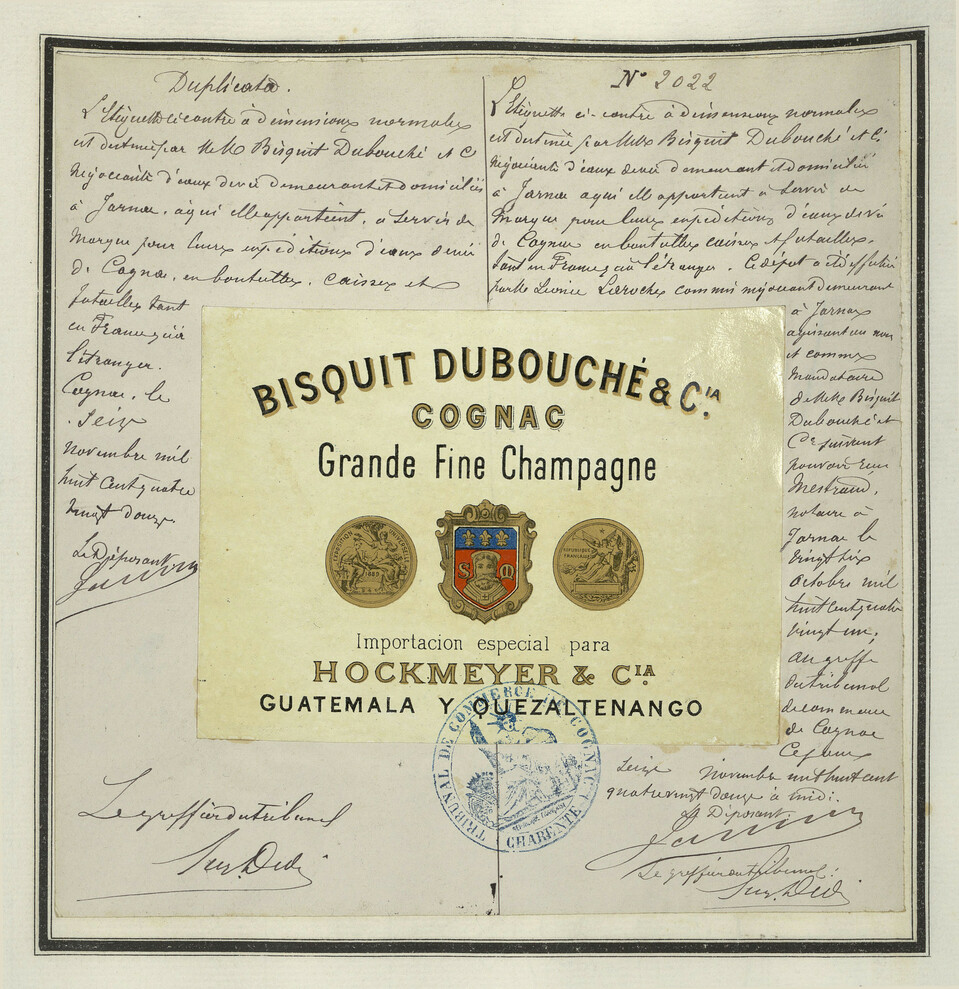 Duplicata.
L'Etiquette ci contre à dimensions normales
est destinée par MM Bisquit Dubouché et Cie
Négociants d'eaux de vie demeurant et domiciliés
à Jarnac, à qui elle appartient, à servir de
Marque pour leurs expéditions d'eaux de vie
de Cognac, en bouteilles, caisses et
futailles tant
en France qu'à
l'étranger.
Cognac, le
Seize
novembre mil
huit cent quatre
vingt douze.
Le Déposant
Le greffier du tribunal
N° 2022
L'Etiquette ci-contre à dimensions normales
est destinée par MM Bisquit Dubouché et Cie
Négociants d'eaux de vie demeurant et domiciliés
à Jarnac à qui elle appartient à servir de
Marque pour leurs expéditions d'eaux de vie
de Cognac en bouteilles caisses et futailles,
tant en France qu'à l'étranger. Ce dépôt a été effectué
par Mr Leonce Laroche commis négociant demeurant
à Jarnac
agissant au nom
et comme
Mandataire
de MM Bisquit
Dubouché et
Cie suivant
pouvoir reçu
Mestraud,
notaire à
Jarnac le
vingt six
octobre mil
huit cent quatre
vingt un,
au greffe
du tribunal
de commerce
de Cognac
Ce jour
Seize novembre mil huit cent
quatre vingt douze à midi.
Le Déposant
Le greffier du tribunal:
BISQUIT DUBOUCHÉ & CIA.
COGNAC
Grande Fine Champagne
EXPOSITION UNIVERSELLE
REPUBLIQUE FRANCAISE
S M
Importacion especial para
HOCKMEYER & CIA.
GUATEMALA Y QUEZALTENANGO
TRIBUNAL DE COMMERCE DE COGNAC
CHARENTE